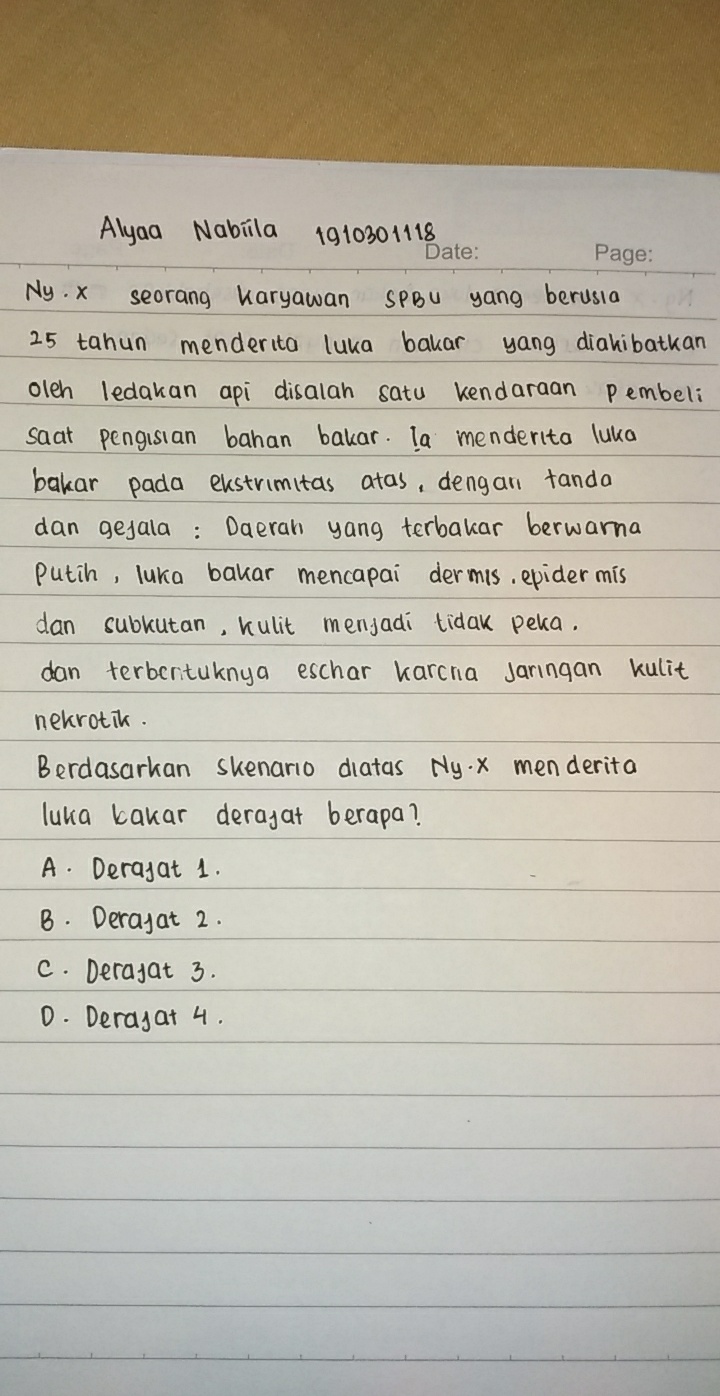 Alyaa Nabiila 1910301118
Date: Page:
Ny. x seorang karyawan SPBU yang berusia
25 tahun menderita luka bakar yang diakibatkan
oleh ledakan api disalah satu kendaraan pembeli
saat pengisian bahan bakar. Ia menderita luka
bakar pada ekstrimitas atas, dengan tanda
dan gejala : Daerah yang terbakar berwarna
putih, luka bakar mencapai dermis, epidermis
dan subkutan, kulit menjadi tidak peka.
dan terbentuknya eschar karena jaringan kulit
nekrotik.
Berdasarkan skenario diatas Ny.x menderita
luka bakar derajat berapa?
A. Derajat 1.
B. Derajat 2.
C. Derajat 3.
D. Derajat 4.